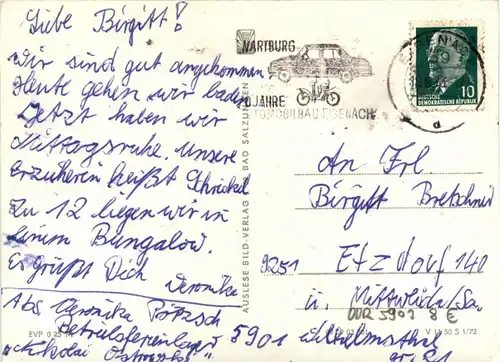 Liebe Birgitt!
Wir sind gut angekommen.
Heute gehen wir baden
Jetzt haben wir
Mittagsruhe. Unsere
Erzieherin heißt Schrickel
Zu 12 liegen wir in
einem Bungalow.
Es grüßt Dich
Veronika
Abs. Veronika Pötzsch
Betriebsferienlager
"Nikolai Ostrowski"
5901 Wilhelmsthal
EVP 0 25
AUSLESE BILD-VERLAG BAD SALZUNGEN
WARTBURG
JAHRE
AUTOMOBILBAU EISENACH
10
DEUTSCHE
DEMOKRATISCHE REPUBLIK
An Frl.
Birgitt Bretschneid
9251 Etzdorf 140
ü. Mittweida/Sa.
DDR 5901 8 €
V 11 50 S 1/72